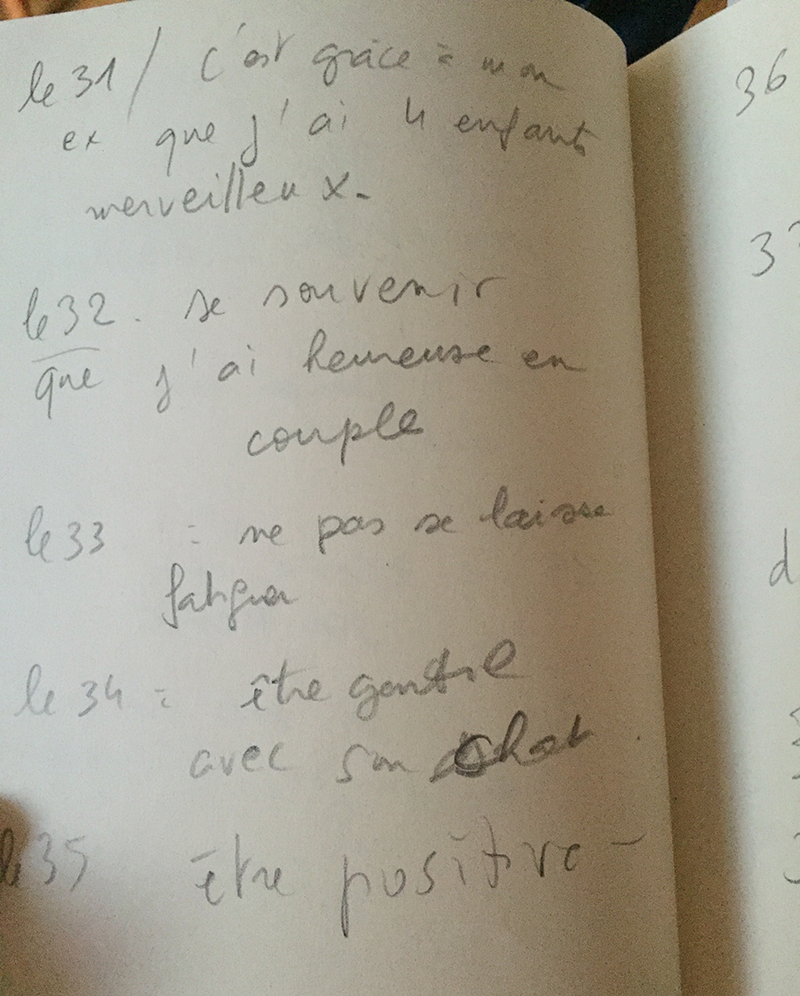 le 31 / c'est grâce à mon
ex que j'ai 4 enfants
merveilleux.
le 32. se souvenir
que j'ai heureuse en
couple
le 33 = ne pas se laisse
fatiguer
le 34 = être gentil
avec son chat.
le 35 être positive -
36
3
d